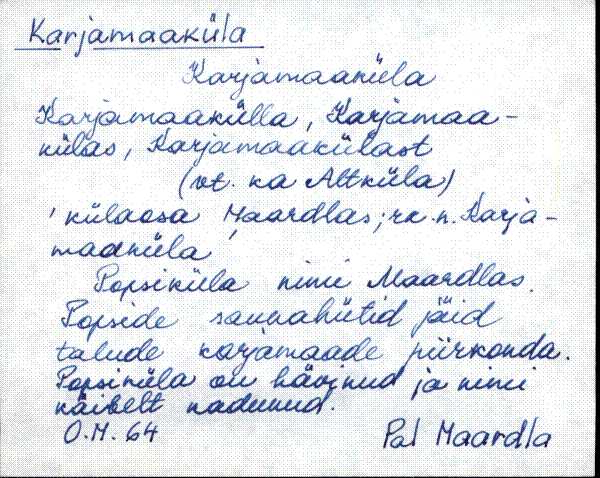 Karjamaaküla
Karjamaaküla
Karjamaakülla, Karjamaa-
külas, Karjamaakülast
(vt. ka Altküla)
'külaosa Maardlas; rk. n. Karja-
maaküla'
Popsiküla nimi Maardlas.
Popside saunahütid jäid
talude karjamaade piirkonda.
Popsiküla on hävinud ja nimi
käibelt kadunud.
O.M. 64
Pal Maardla